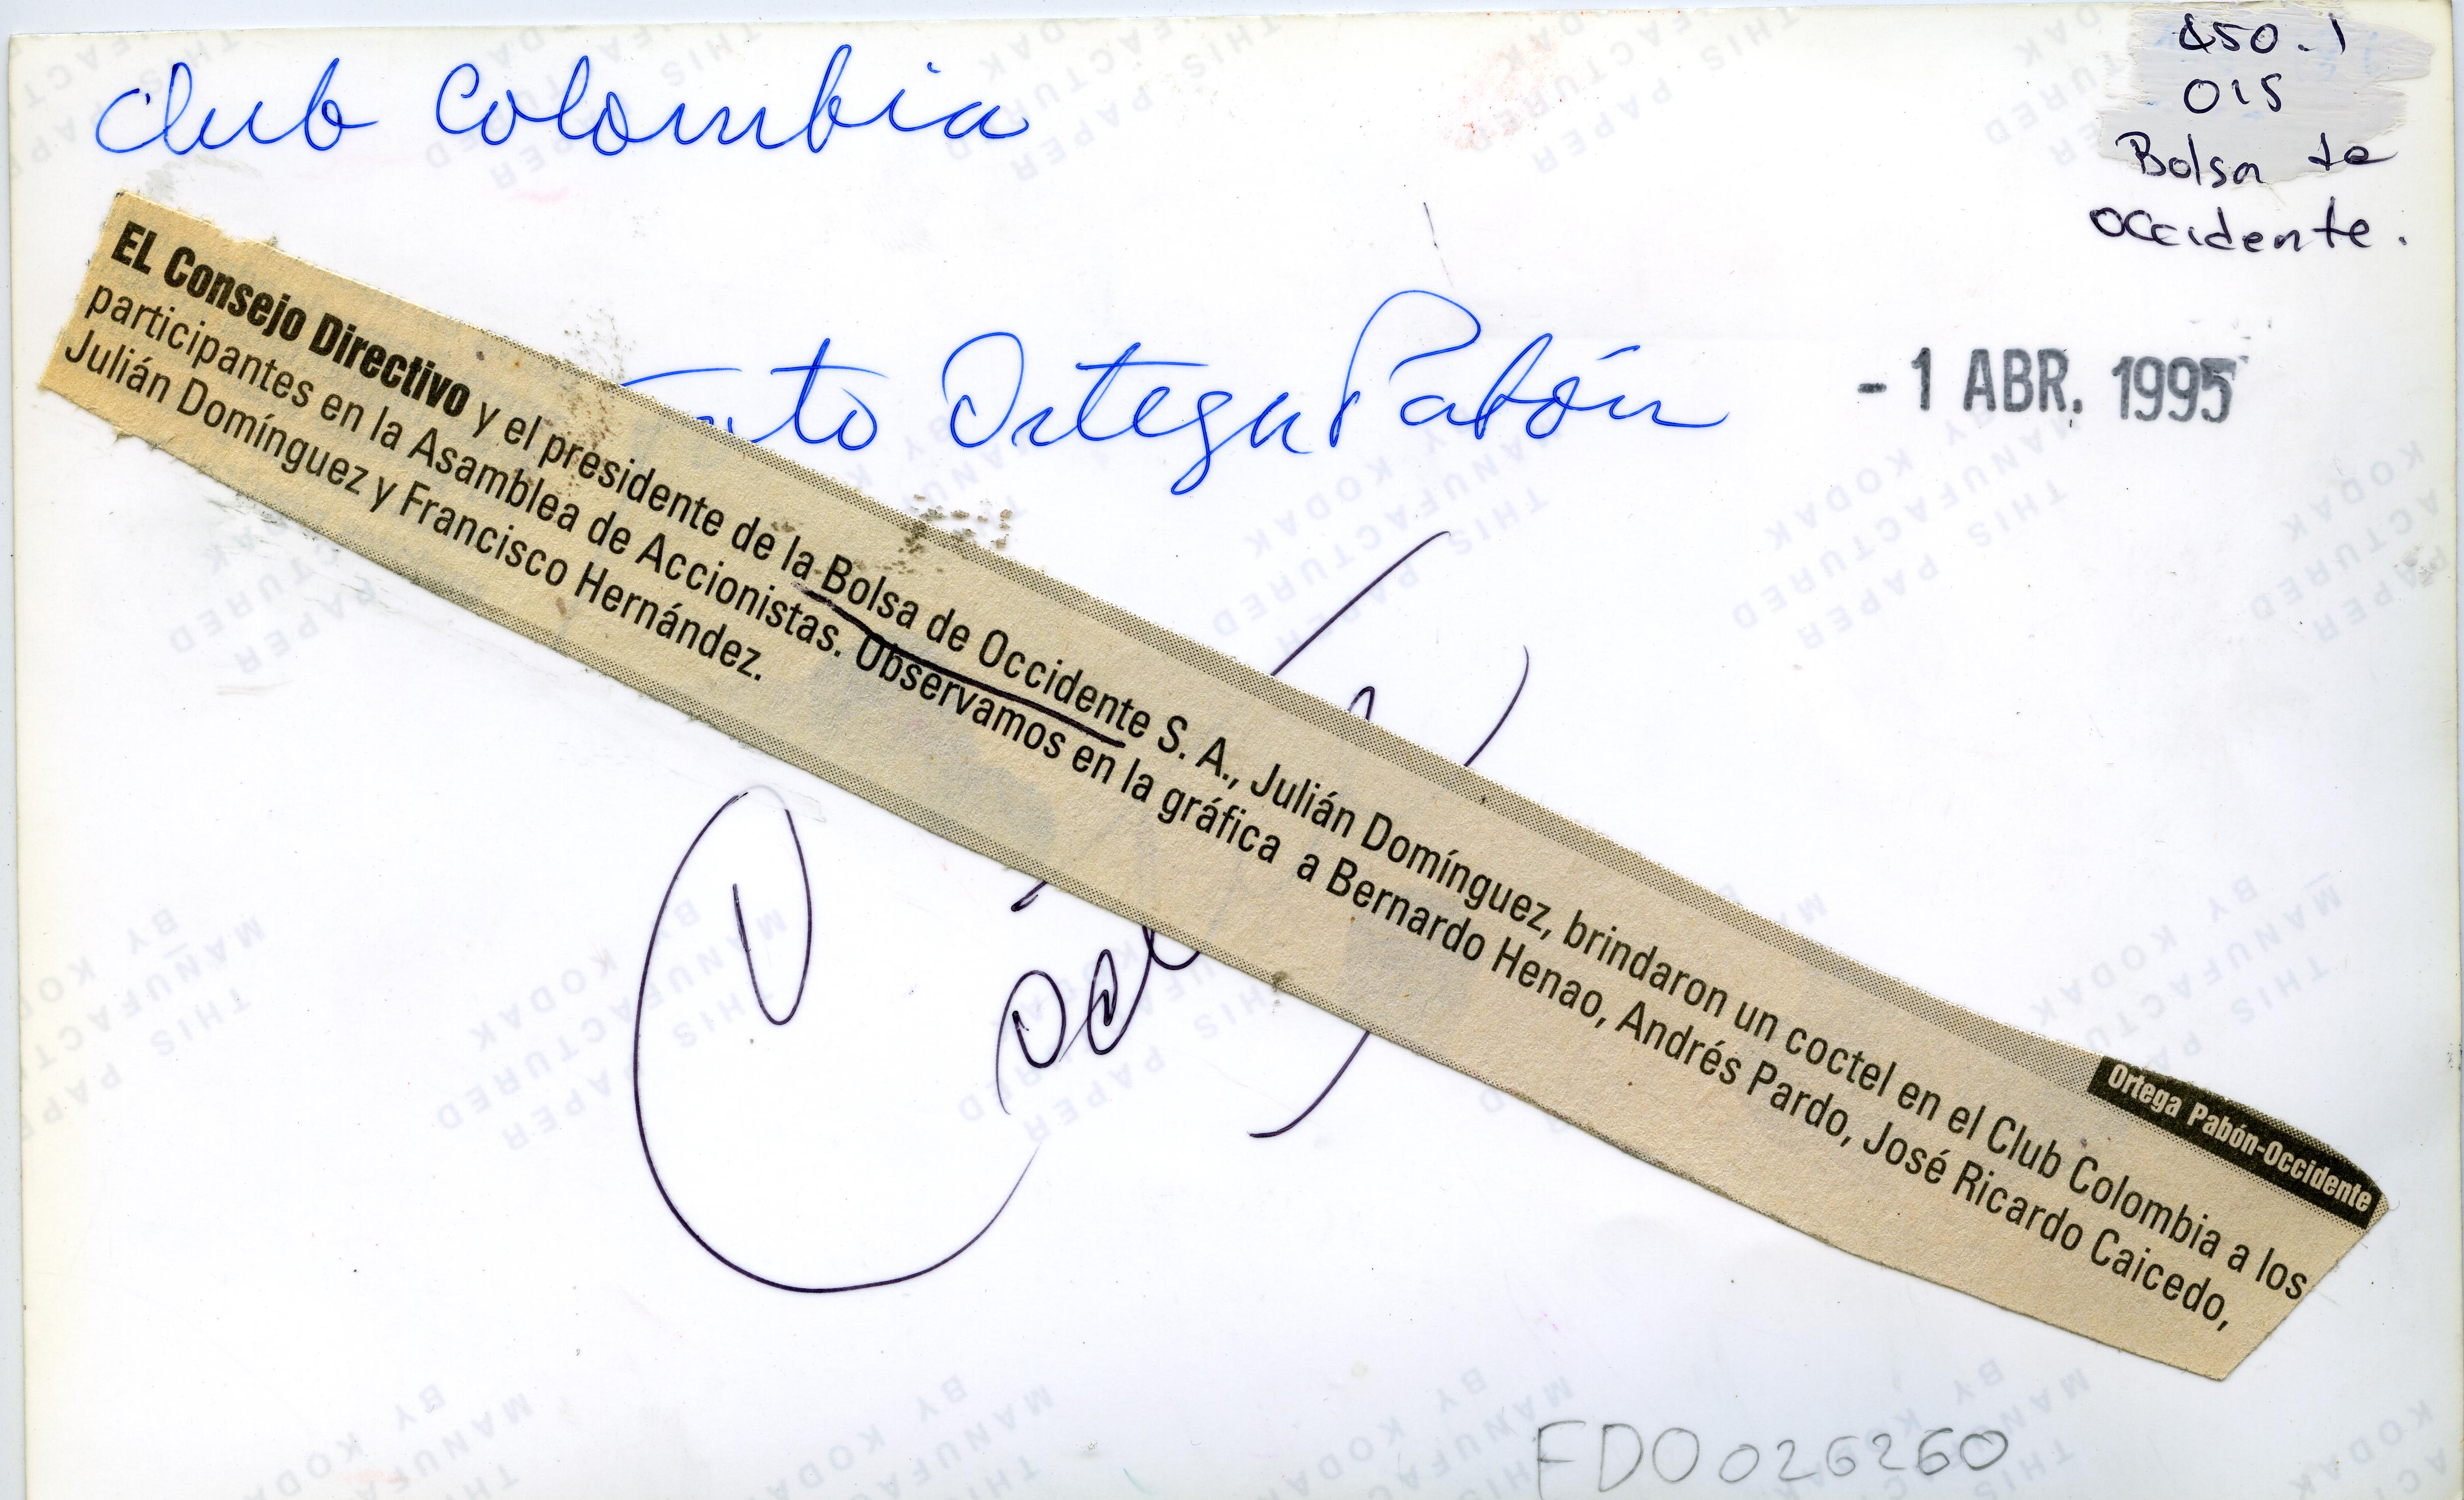 Club Colombia
450.1
015
Bolsa de
Occidente.
Ortega Pabón
- 1 ABR. 1995
EL Consejo Directivo y el presidente de la Bolsa de Occidente S. A., Julián Domínguez, brindaron un coctel en el Club Colombia a los
participantes en la Asamblea de Accionistas. Observamos en la gráfica a Bernardo Henao, Andrés Pardo, José Ricardo Caicedo,
Julián Domínguez y Francisco Hernández.
Ortega Pabón-Occidente
FDO026260
THIS PAPER
MANUFACTURED
BY KODAK